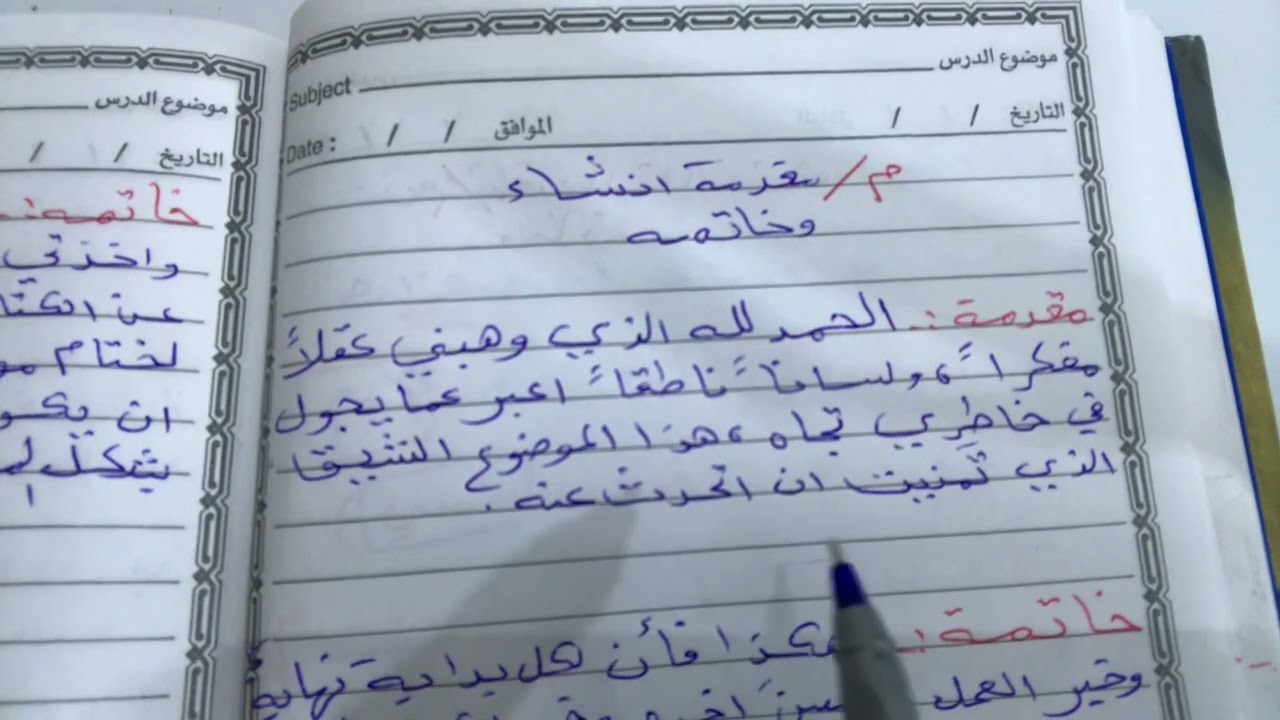 موضوع الدرس
Subject
التاريخ / / الموافق / / Date :
م/ مقدمة انشاء
وخاتمه
مقدمة :. الحمد لله الذي وهبني عقلاً
مفكراً، ولساناً ناطقاً اعبر عما يجول
في خاطري تجاه ،هذا الموضوع الشيق
الذي تمنيت ان اتحدث عنه .
خاتمة :. هكذا فأن لكل بداية نهاية
وخير العمل
موضوع الدرس
التاريخ / /
خاتمه :.
واخذتي
عن
لختام
ان
يشكل